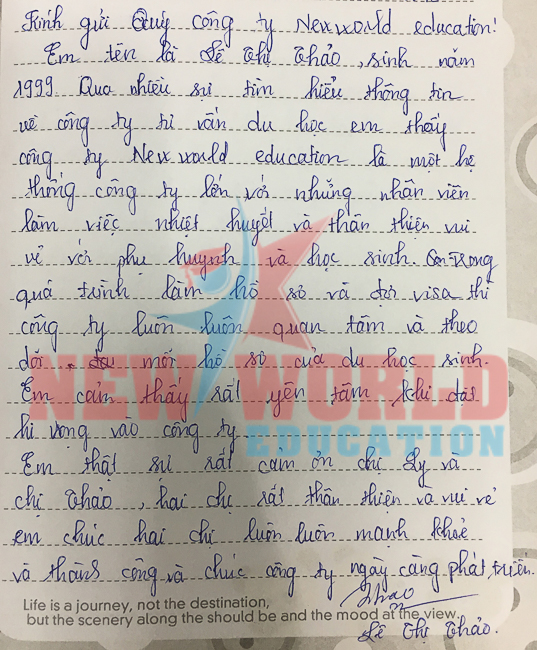 Kính gửi Quý công ty New world education!
Em tên là Lê Thị Thảo, sinh năm
1999. Qua nhiều sự tìm hiểu thông tin
về công ty tư vấn du học em thấy
công ty New world education là một hệ
thống công ty lớn với những nhân viên
làm việc nhiệt huyết và thân thiện vui
vẻ với phụ huynh và học sinh. Trong
quá trình làm hồ sơ và đợi visa thì
công ty luôn luôn quan tâm và theo
dõi mỗi hồ sơ của du học sinh.
Em cảm thấy rất yên tâm khi đặt
hi vọng vào công ty.
Em thật sự rất cảm ơn chị Ly và
chị Thảo, hai chị rất thân thiện và vui vẻ
em chúc hai chị luôn luôn mạnh khoẻ
và thành công và chúc công ty ngày càng phát triển.
Thao
Lê Thị Thảo.
NEW WORLD
EDUCATION
Life is a journey, not the destination,
but the scenery along the should be and the mood at the view.